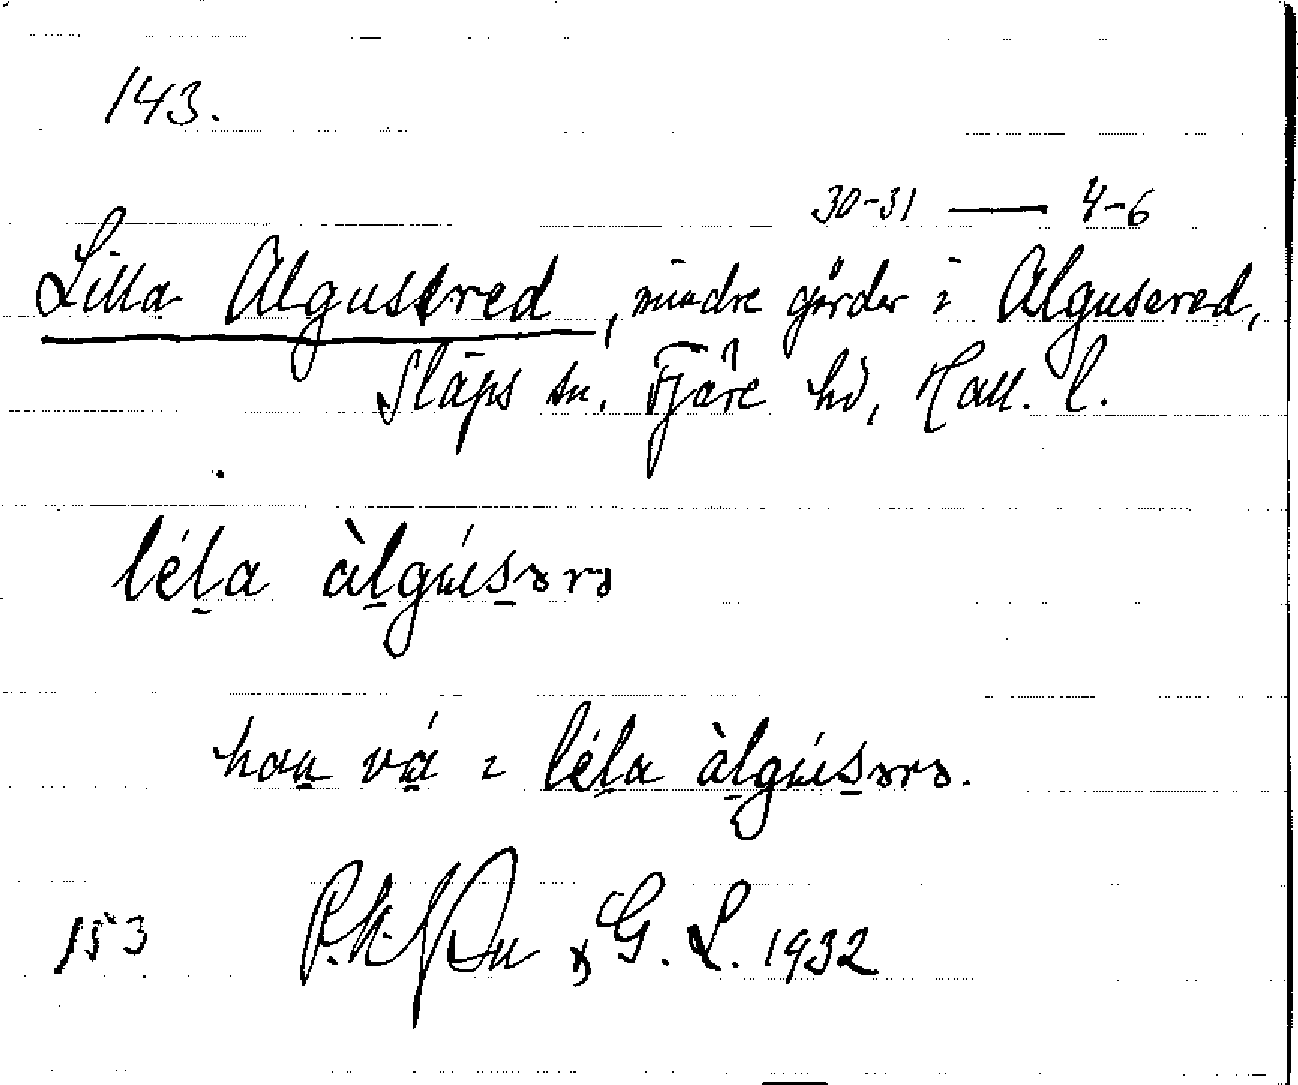 143.
30-31 — 4-6
Lilla Algusered, mindre gårdar i Algusered,
Släps sn, Fjäre hd, Hall. l.
léḻa àḻgúsərə
han vá i léḻa àḻgúsərə.
153 G. L. 1932